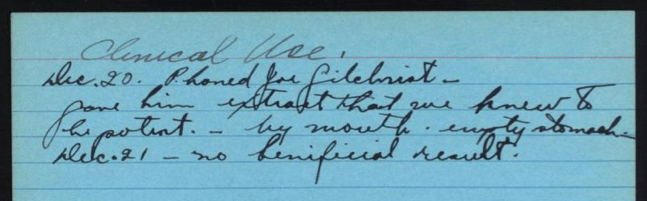 Clinical Use.
Dec. 20. Phoned Joe Gilchrist -
gave him extract that we knew to
be potent. - by mouth. empty stomach.
Dec. 21 - no benificial result.